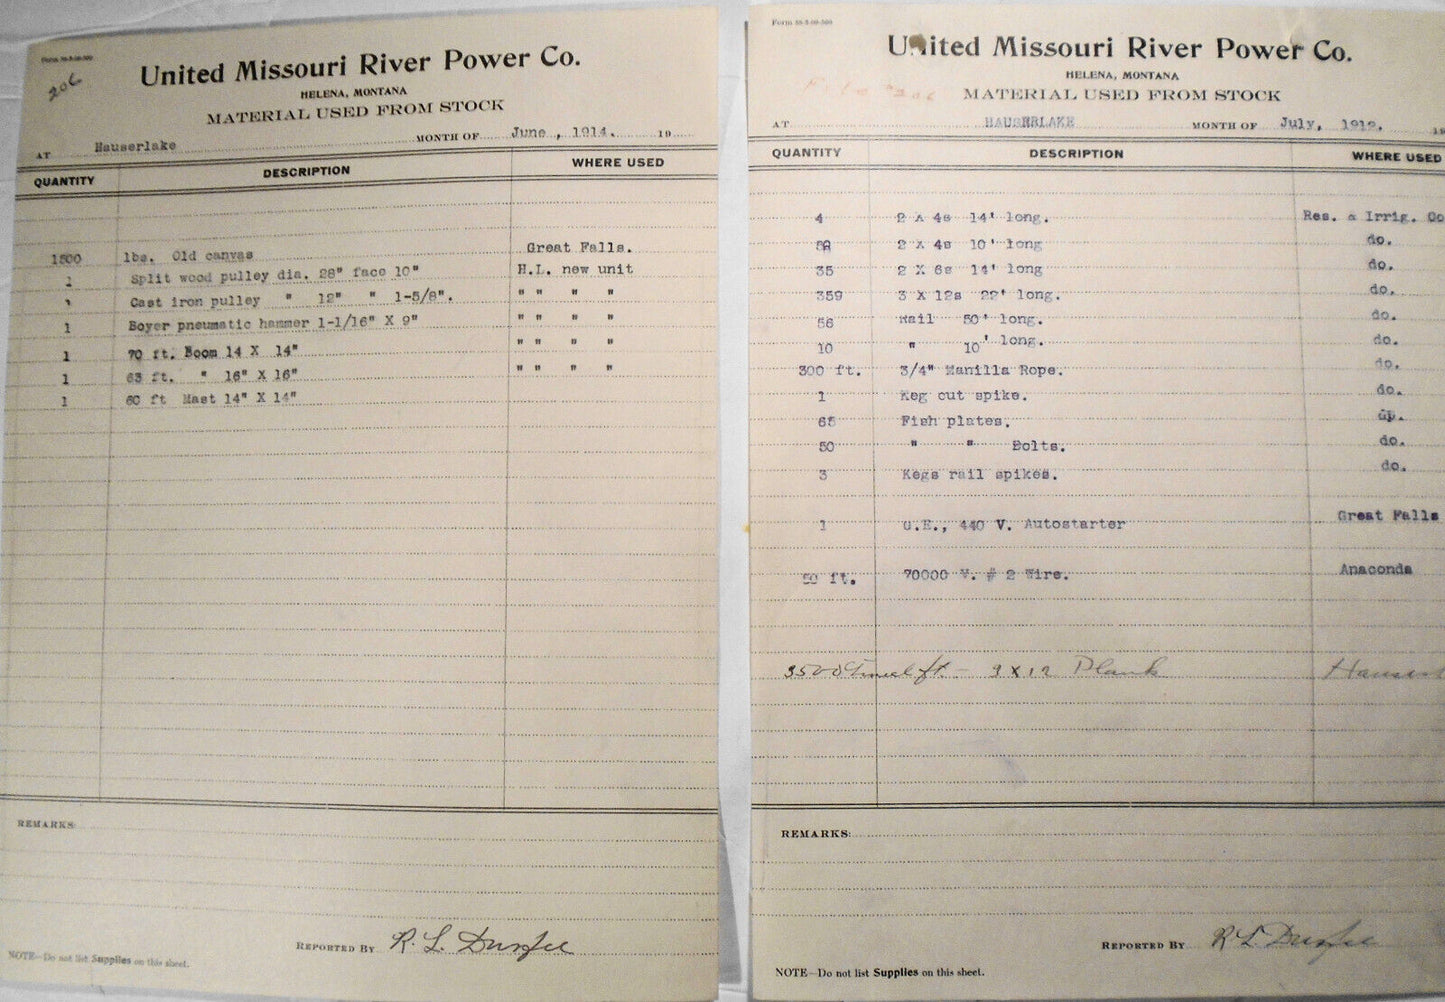 Form 58-5-09-500
206
United Missouri River Power Co.
HELENA, MONTANA
MATERIAL USED FROM STOCK
AT Hauserlake MONTH OF June, 1914. 19
QUANTITY DESCRIPTION WHERE USED
1500 lbs. Old canvas Great Falls.
1 Split wood pulley dia. 28" face 10" H.L. new unit
1 Cast iron pulley " 12" " 1-5/8". " " " "
1 Boyer pneumatic hammer 1-1/16" X 9" " " " "
1 70 ft. Boom 14 X 14" " " " "
1 63 ft. " 16" X 16" " " " "
1 60 ft Mast 14" X 14"
REMARKS:
REPORTED BY R. L.
NOTE—Do not list Supplies on this sheet.
Form 58-5-09-500
United Missouri River Power Co.
HELENA, MONTANA
206
MATERIAL USED FROM STOCK
AT HAUSERLAKE MONTH OF July, 1912. 19
QUANTITY DESCRIPTION WHERE USED
4 2 X 4s 14' long. Res. & Irrig. Co
2 X 4s 10' long do.
35 2 X 6s 14' long do.
359 3 X 12s 22' long. do.
56 Rail 50' long. do.
10 " 10' long. do.
300 ft. 3/4" Manilla Rope. do.
1 Keg cut spike. do.
65 Fish plates.
50 " " Bolts. do.
3 Kegs rail spikes. do.
1 G.E., 440 V. Autostarter Great Falls
50 ft. 70000 V. # 2 Wire. Anaconda
3500 ft. - 3 X 12 Plank
REMARKS:
REPORTED BY R L
NOTE—Do not list Supplies on this sheet.